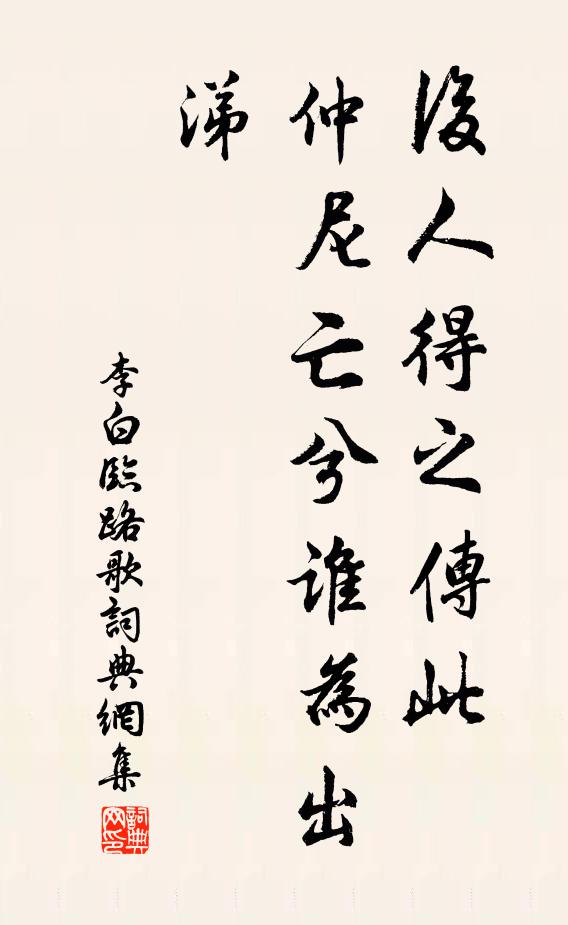 後人得之傳此
仲尼亡兮誰為出
涕
李白臨路歌詞典網集
詞典
网印